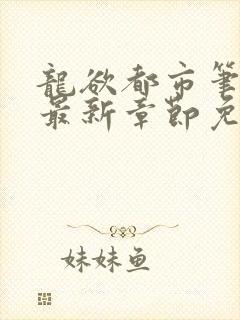 龍欲都市筆
最新章節免
妹妹鱼